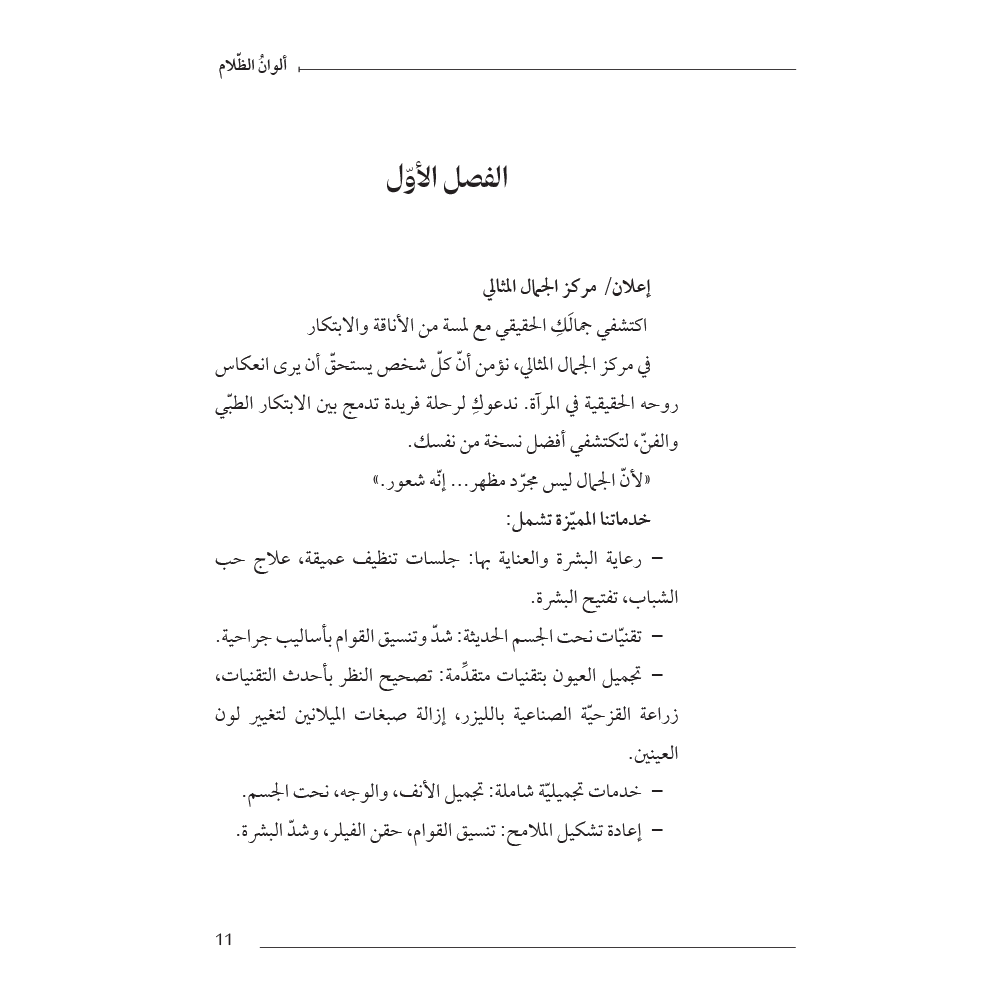 ألوانُ الظّلام
الفصل الأوّل
إعلان/ مركز الجمال المثالي
اكتشفي جمالَكِ الحقيقي مع لمسة من الأناقة والابتكار
في مركز الجمال المثالي، نؤمن أنّ كلّ شخص يستحقّ أن يرى انعكاس
روحه الحقيقية في المرآة. ندعوكِ لرحلة فريدة تدمج بين الابتكار الطبّي
والفنّ، لتكتشفي أفضل نسخة من نفسك.
«لأنّ الجمال ليس مجرّد مظهر... إنّه شعور.»
خدماتنا المميّزة تشمل:
– رعاية البشرة والعناية بها: جلسات تنظيف عميقة، علاج حب
الشباب، تفتيح البشرة.
– تقنيّات نحت الجسم الحديثة: شدّ وتنسيق القوام بأساليب جراحية.
– تجميل العيون بتقنيات متقدِّمة: تصحيح النظر بأحدث التقنيات،
زراعة القزحيّة الصناعية بالليزر، إزالة صبغات الميلانين لتغيير لون
العينين.
– خدمات تجميليّة شاملة: تجميل الأنف، والوجه، نحت الجسم.
– إعادة تشكيل الملامح: تنسيق القوام، حقن الفيلر، وشدّ البشرة.
11